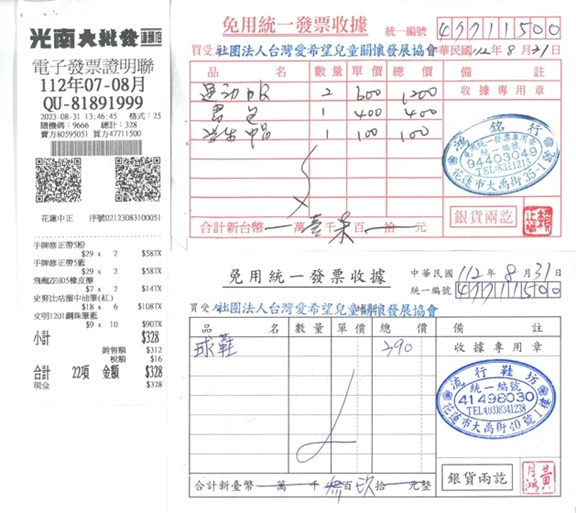 光南大批發
電子發票證明聯
112年07-08月
QU-81891999
2023-08-31 13:46:45 格式：25
隨機碼：9666 總計：328
賣方80595051 買方47711500
花蓮中正 序號02123083100051
手牌修正帶5粉
$29 x 2 $58TX
手牌修正帶5藍
$29 x 2 $58TX
$7 x 2 $14TX
史努比站溜中油筆(紅)
$18 x 6 $108TX
文明1201鋼珠筆藍
$9 x 10 $90TX
小計 $328
銷售額 $312
稅額 $16
合計 22項 金額 $328
現金 $328
免用統一發票收據
統一編號 47711500
買受人社團法人台灣愛希望兒童關懷發展協會 中華民國112年8月31日
品名 數量 單價 總價 備註
運動服 2 600 1200
收據專用章
書包 1 400 400
1 100 100
銘行
免用統一發票專用章
統一編號
94403049
花蓮市大禹街35-1號
合計新台幣 萬壹千柒百 拾 元
銀貨兩訖
免用統一發票收據
中華民國112年8月31日
統一編號 47711500
買受人社團法人台灣愛希望兒童關懷發展協會
品名 數量 單價 總價 備註
球鞋 390
收據專用章
流行鞋坊
統一編號
41498030
TEL:(03)8341238
花蓮市大禹街40號1樓
合計新臺幣 萬 千參百玖拾 元整
銀貨兩訖